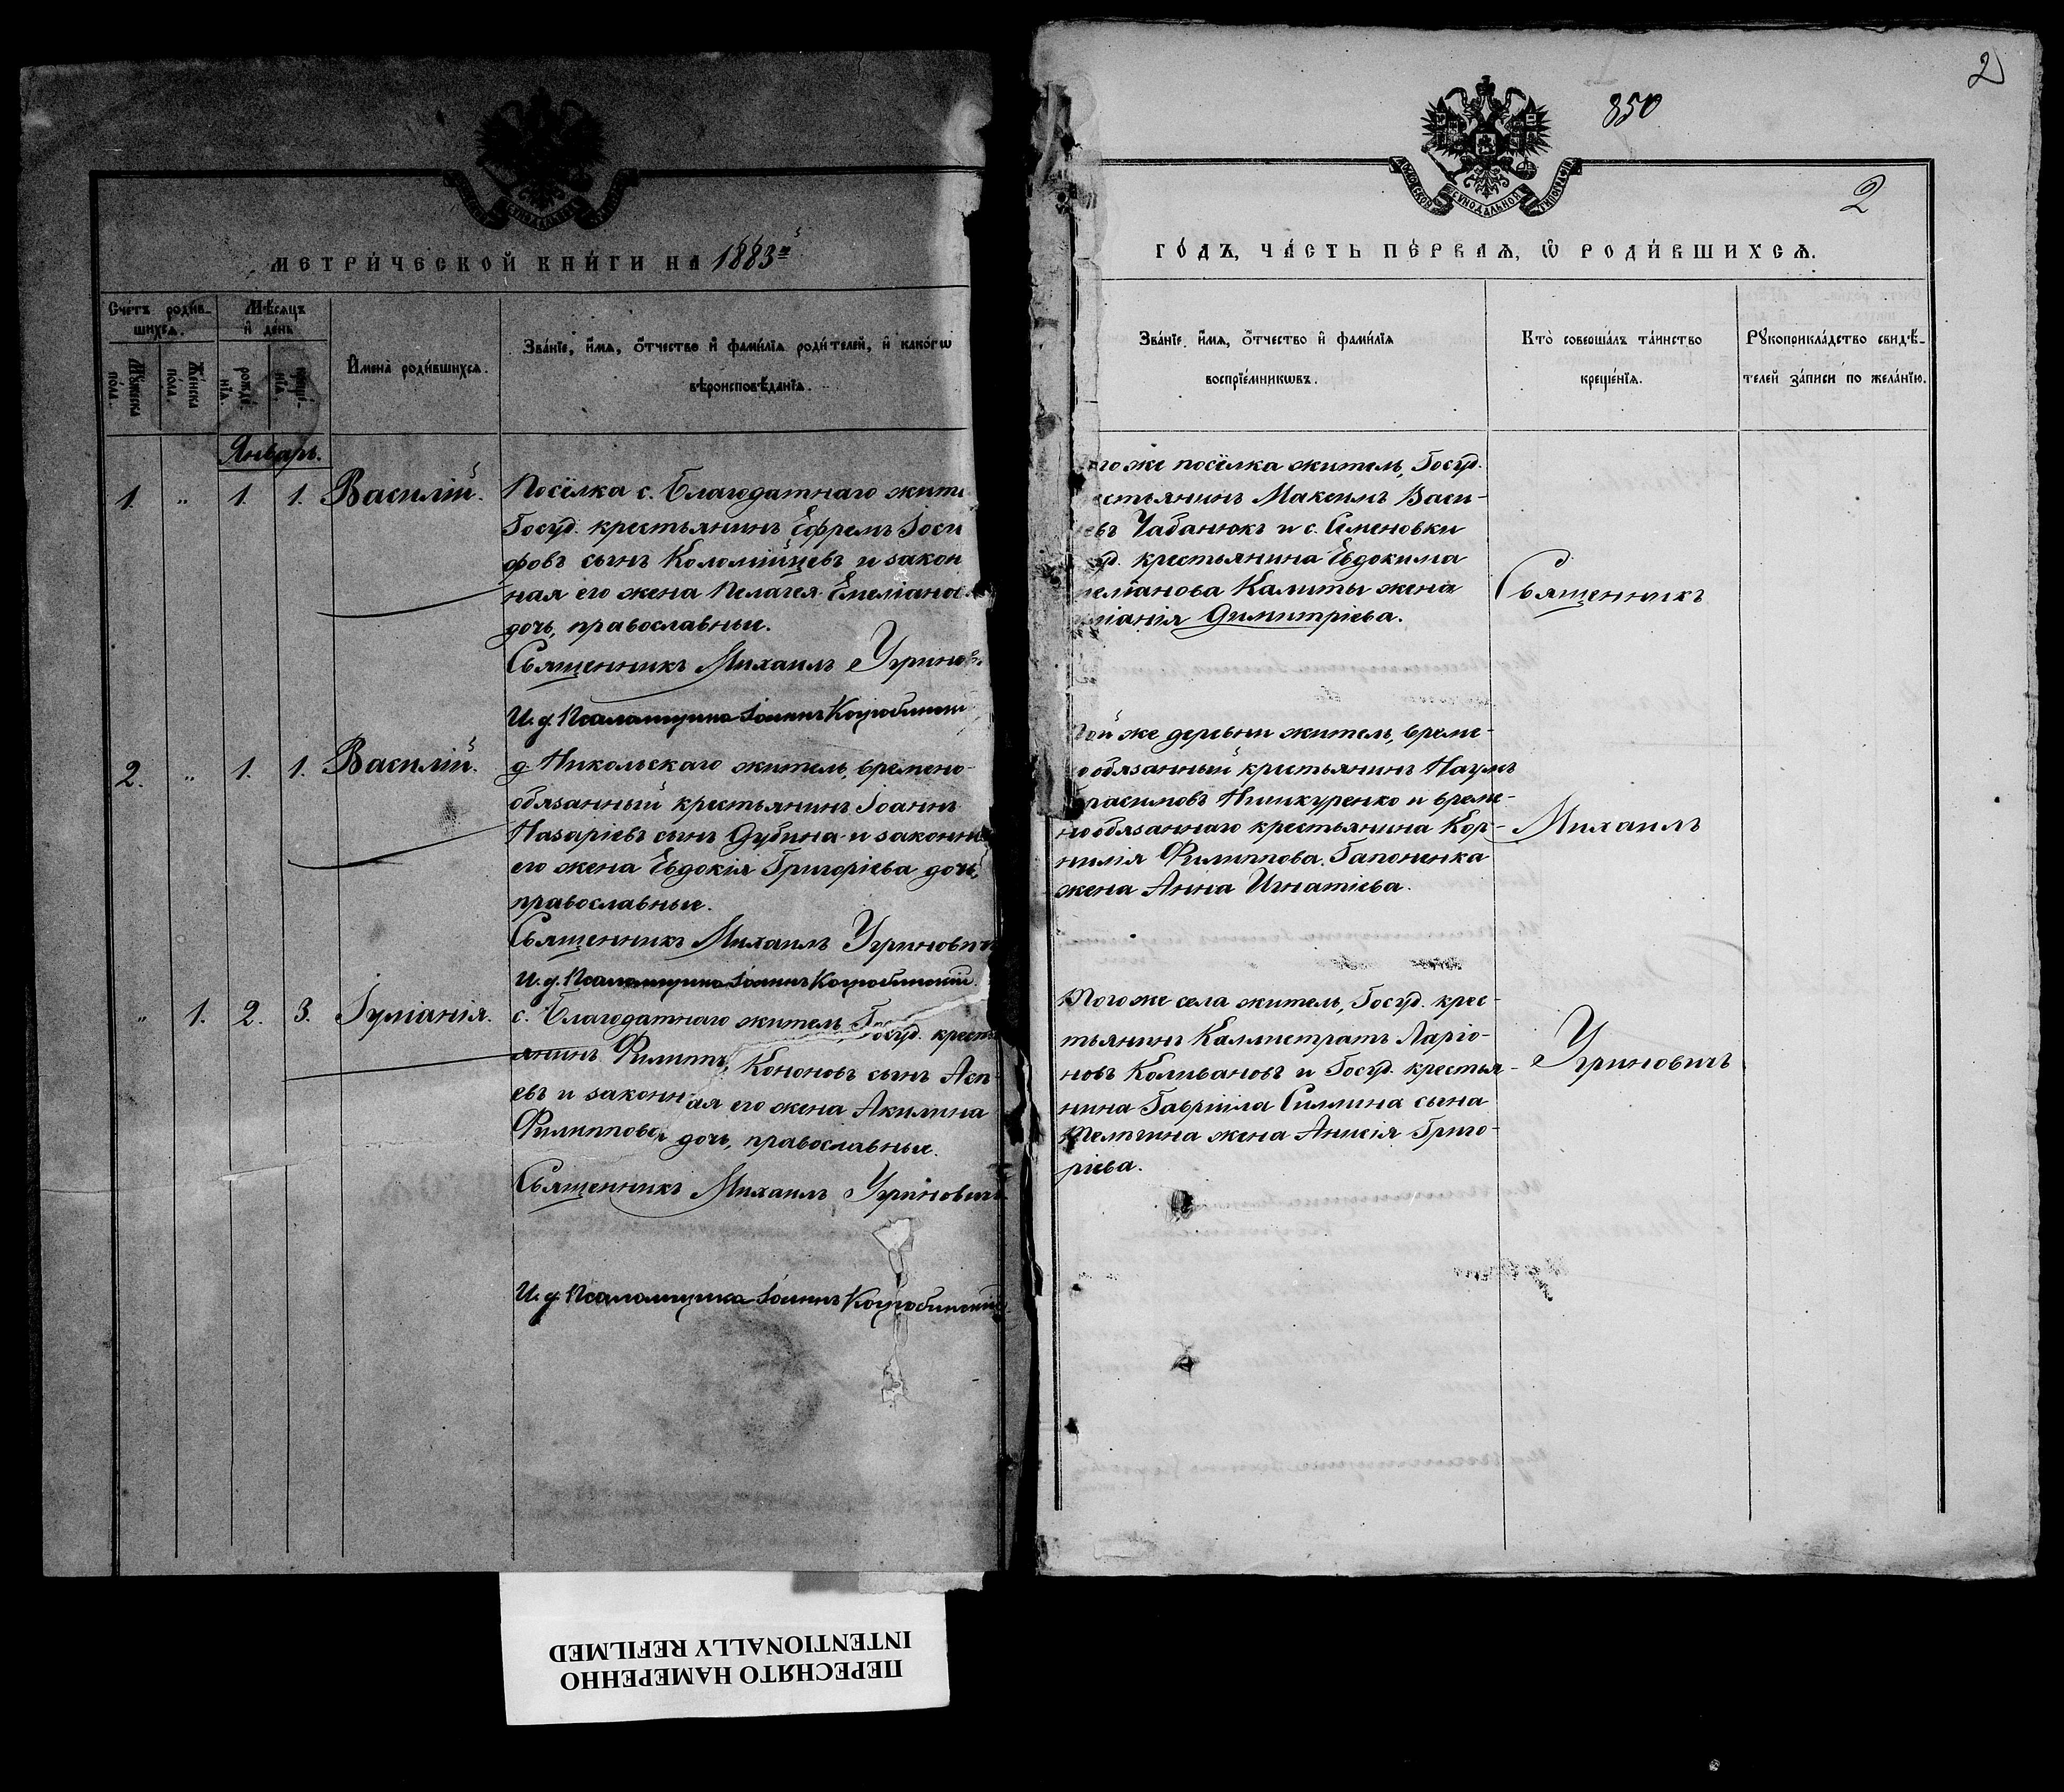 МЕТРИ́ЧЕСКОЙ КНИ́ГИ НА 1883й
Сче́тъ роди́в-
шихся.
Мѣ́сяцъ
и҆ де́нь
Му́жеска
по́ла.
Же́нска
по́ла.
рожде́-
нїѧ.
креще́-
нїѧ.
И҆мена̀ роди́вшихсѧ.
Зва́нїе, и҆́мѧ, ѻ҆́тчество и҆ фами́лїѧ роди́телей, и҆ како́гѡ
вѣроисповѣ́данїѧ.
Январь.
1. " 1. 1. Василій.
Посёлка с. Благодатнаго жите
Госуд. крестьянинъ Ефремъ Іоси
фовъ сынъ Коломійцевъ и закон
ная его жена Пелагея Емеліано
дочь, православные.
Священникъ Михаилъ Угринов
И. д. Псаломщика Іоаннъ Коцюбинскій
2. " 1. 1. Василій.
д. Никольскаго житель, времено-
обязанный крестьянинъ Іоаннъ
Назаріевъ сынъ Дубина и законн
его жена Евдокія Григоріева дочь,
православные.
Священникъ Михаилъ Угринович
И. д. Псаломщика Іоаннъ Коцюбинскій.
" 1. 2. 3. Іуліанія.
с. Благодатнаго житель, Госуд. кресть
янинъ Филиппъ Кононовъ сынъ
евъ и законная его жена Акилина
Филиппова дочь, православные.
Священникъ Михаилъ Угриновичъ
И. д. Псаломщика Іоаннъ Коцюбинскій
2
850
МОСКОВСКОЙ СѴНОДАЛЬНОЙ ТИПОГРАФІИ
2
ГО́ДЪ, ЧА́СТЬ ПЕ́РВАѦ, Ѡ҆ РОДИ́ВШИХСѦ.
Зва́нїе, и҆́мѧ, ѻ҆́тчество и҆ фами́лїѧ
воспрїе́мникѡвъ.
Кто̀ соверша́лъ та́инство
креще́нїѧ.
Рꙋкоприкла́дство свидѣ́-
телей за́писи по жела́нїю.
того же посёлка житель, Госуд.
рестьянинъ Максимъ Васи-
евъ Чабанюкъ и с. Семеновки
уд. крестьянина Евдокима
меліанова Калиты жена
ліанія Димитріева.
Священникъ
Той же деревни житель, време-
ообязанный крестьянинъ Наумъ
расимовъ Нишкуренко и време-
нообязаннаго крестьянина Кор-
нилія Филиппова Гапоненка
жена Анна Игнатіева.
Михаилъ
Того же села житель, Госуд. крес-
тьянинъ Каллистратъ Ларіо-
новъ Коливановъ и Госуд. крестья-
нина Гавріила Силлина сына
жена Анисія Григо-
ріева.
Угриновичъ
ПЕРЕСНЯТО НАМЕРЕННО
INTENTIONALLY REFILMED